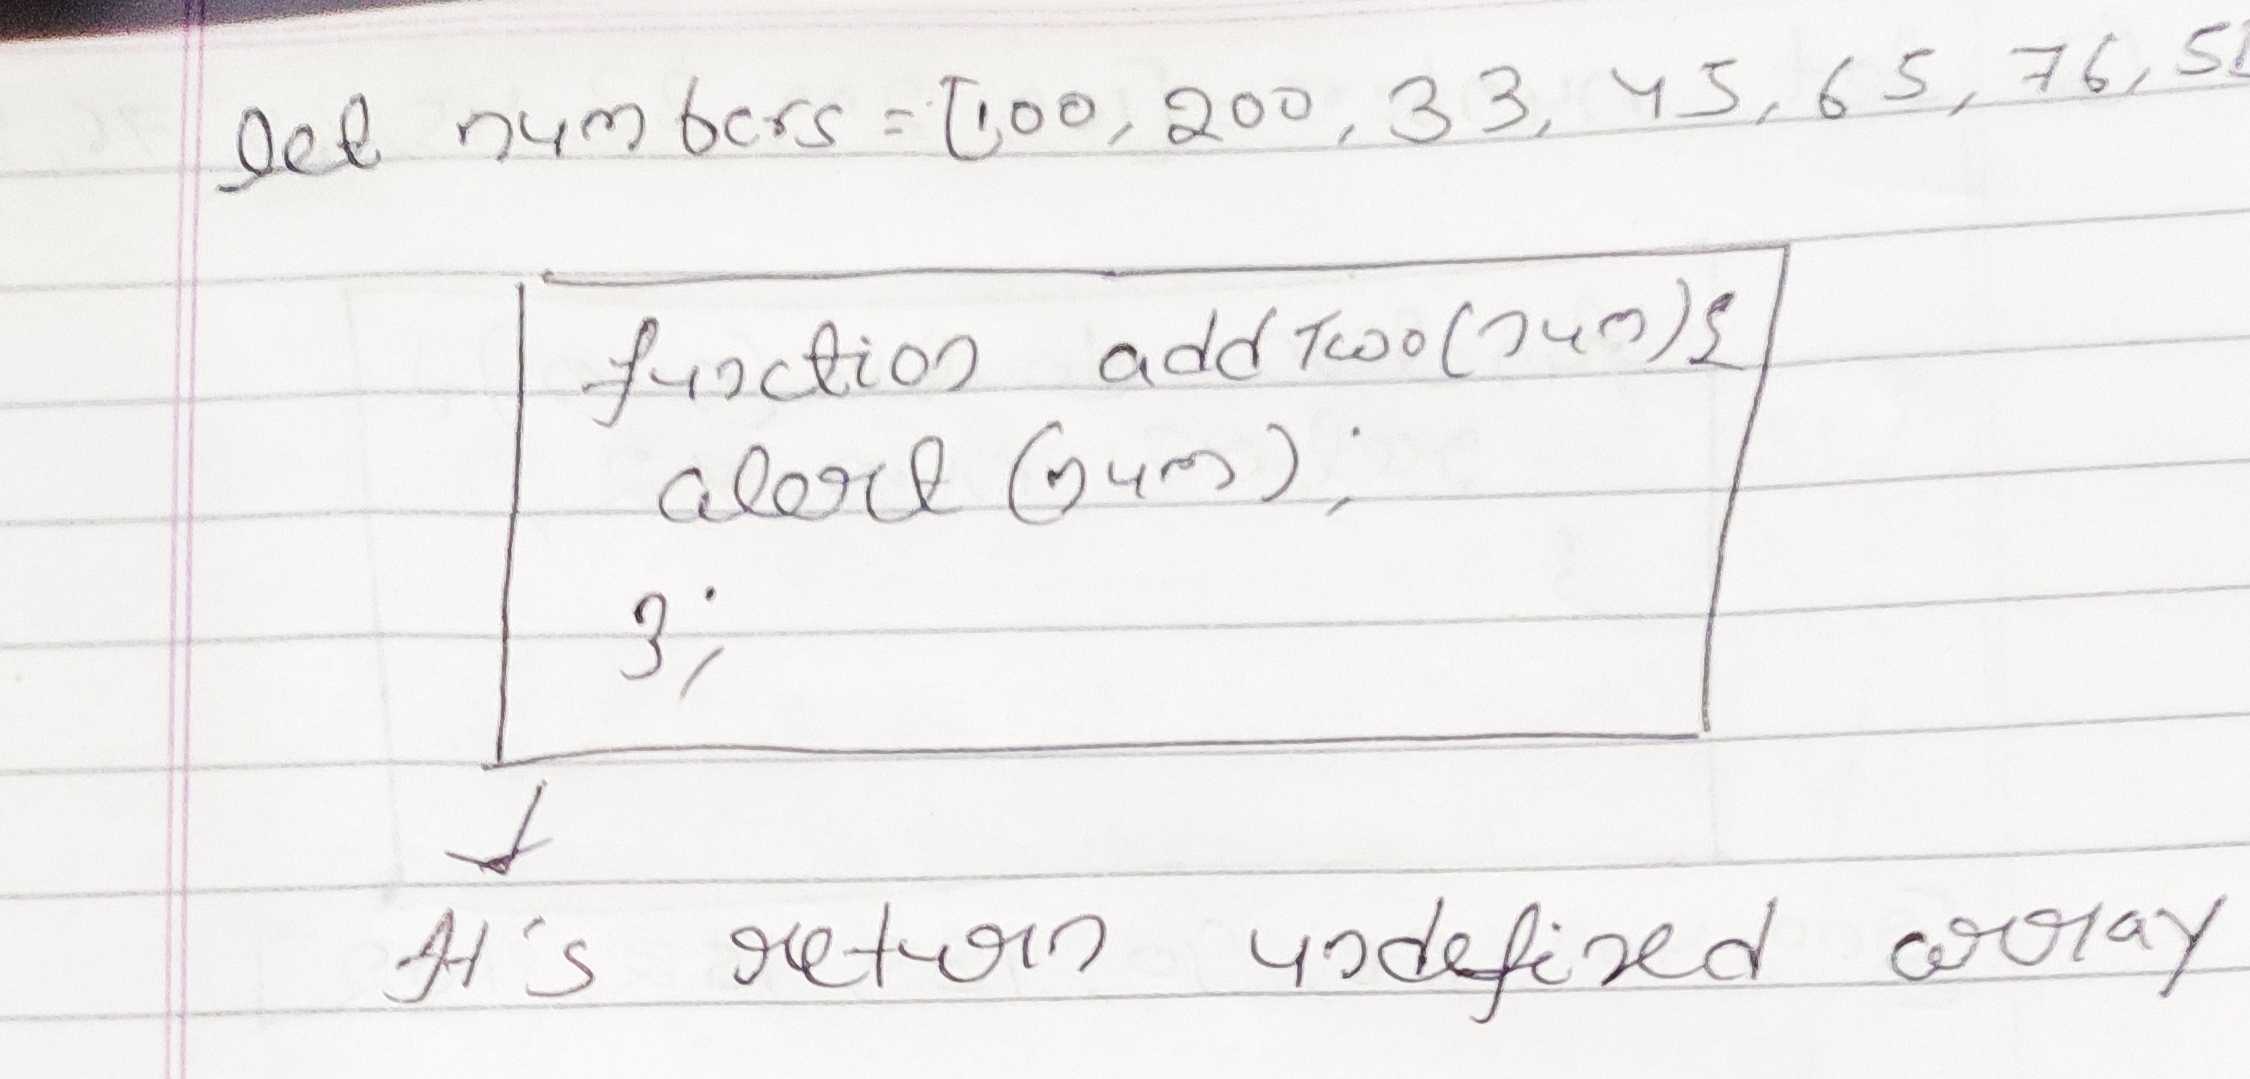 let numbers = [100, 200, 33, 45, 65, 76,
function addTwo(num){
alert (num);
};
It's return undefined array